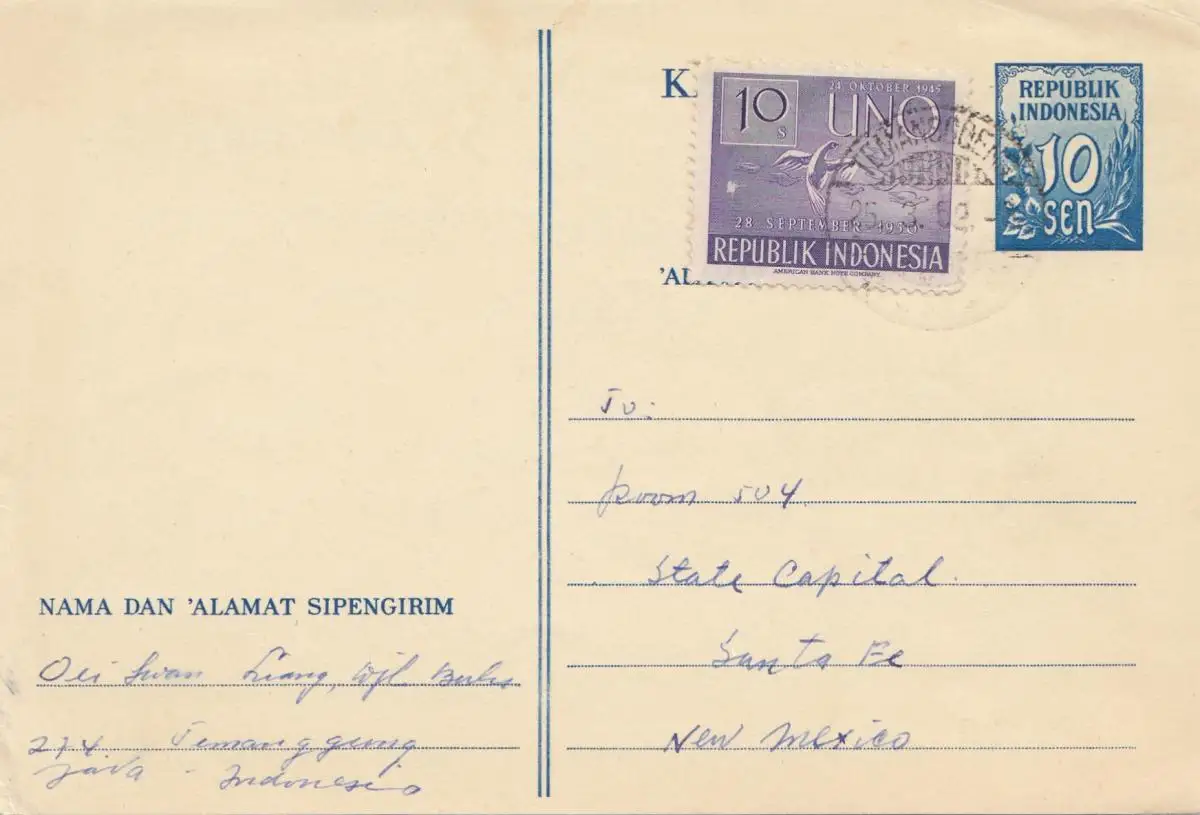 K
10
S
24. OKTOBER 1945
UNO
28 SEPTEMBER 1950
REPUBLIK INDONESIA
AMERICAN BANK NOTE COMPANY
REPUBLIK
INDONESIA
10
SEN
TEMANGGOENG
25. 3.
'AL
To:
Room 504
State Capital.
Santa Fe
New Mexico
NAMA DAN 'ALAMAT SIPENGIRIM
Oei Swan Liang, Djl
274 Temanggung
Java - Indonesia